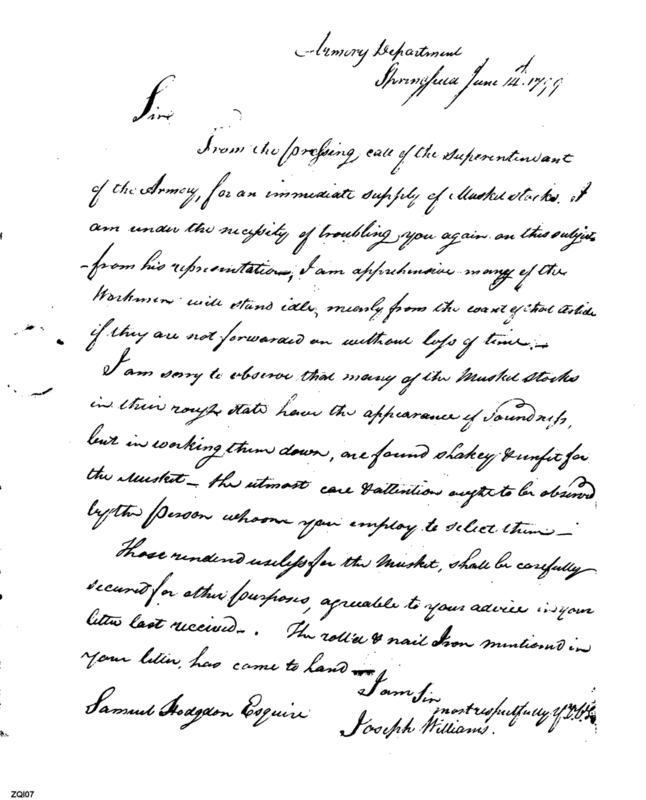 Armory Department
Springfield June 14th. 1799
Sir
From the pressing call of the Superentendant
of the Armory, for an immediate supply of Musket stocks. I
am under the necessity of troubling you again on this subject
from his representation, I am apprehensive many of the
Workmen will stand idle, mearly from the want of that Article
if they are not forwarded on without loss of time.—
I am sorry to observe that many of the Musket Stocks
in their rough state have the appearance of Soundness,
but in working them down, are found shakey & unfit for
the Musket — the utmost care & attention ought to be observed
by the Person whoom you employ to select them —
Those renderd useless for the Musket, shall be carefully
secured for other purposes, agreeable to your advice in your
letter last received —. The roll'd & nail Iron mentioned in
your letter, has come to hand —
I am Sir
most respectfully Yr
Samuel Hodgdon Esquire
Joseph Williams.
ZQI07